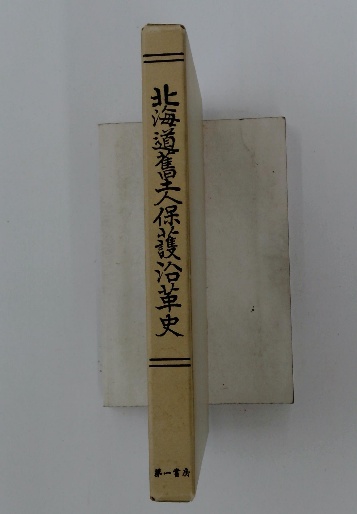 北海道舊土人保護沿革史
第一書房